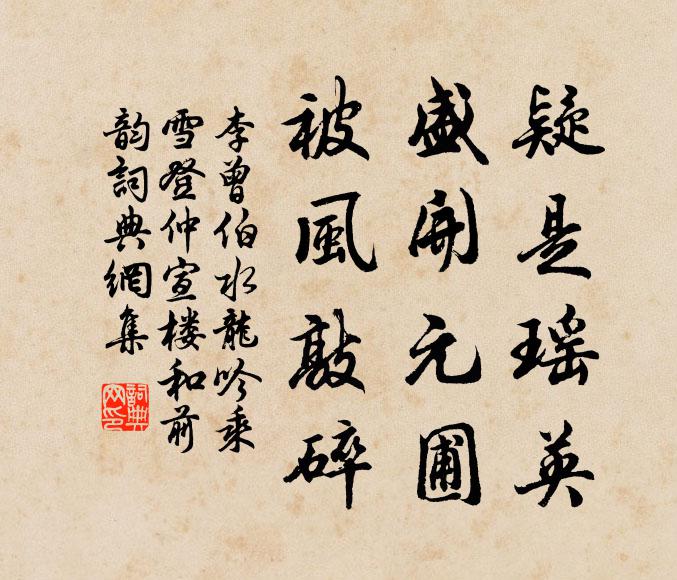 疑是瑶英
盛開元圃
被風敲碎
李曾伯水龍吟乘
雪登仲宣楼和前
韵詞典網集
詞典网印